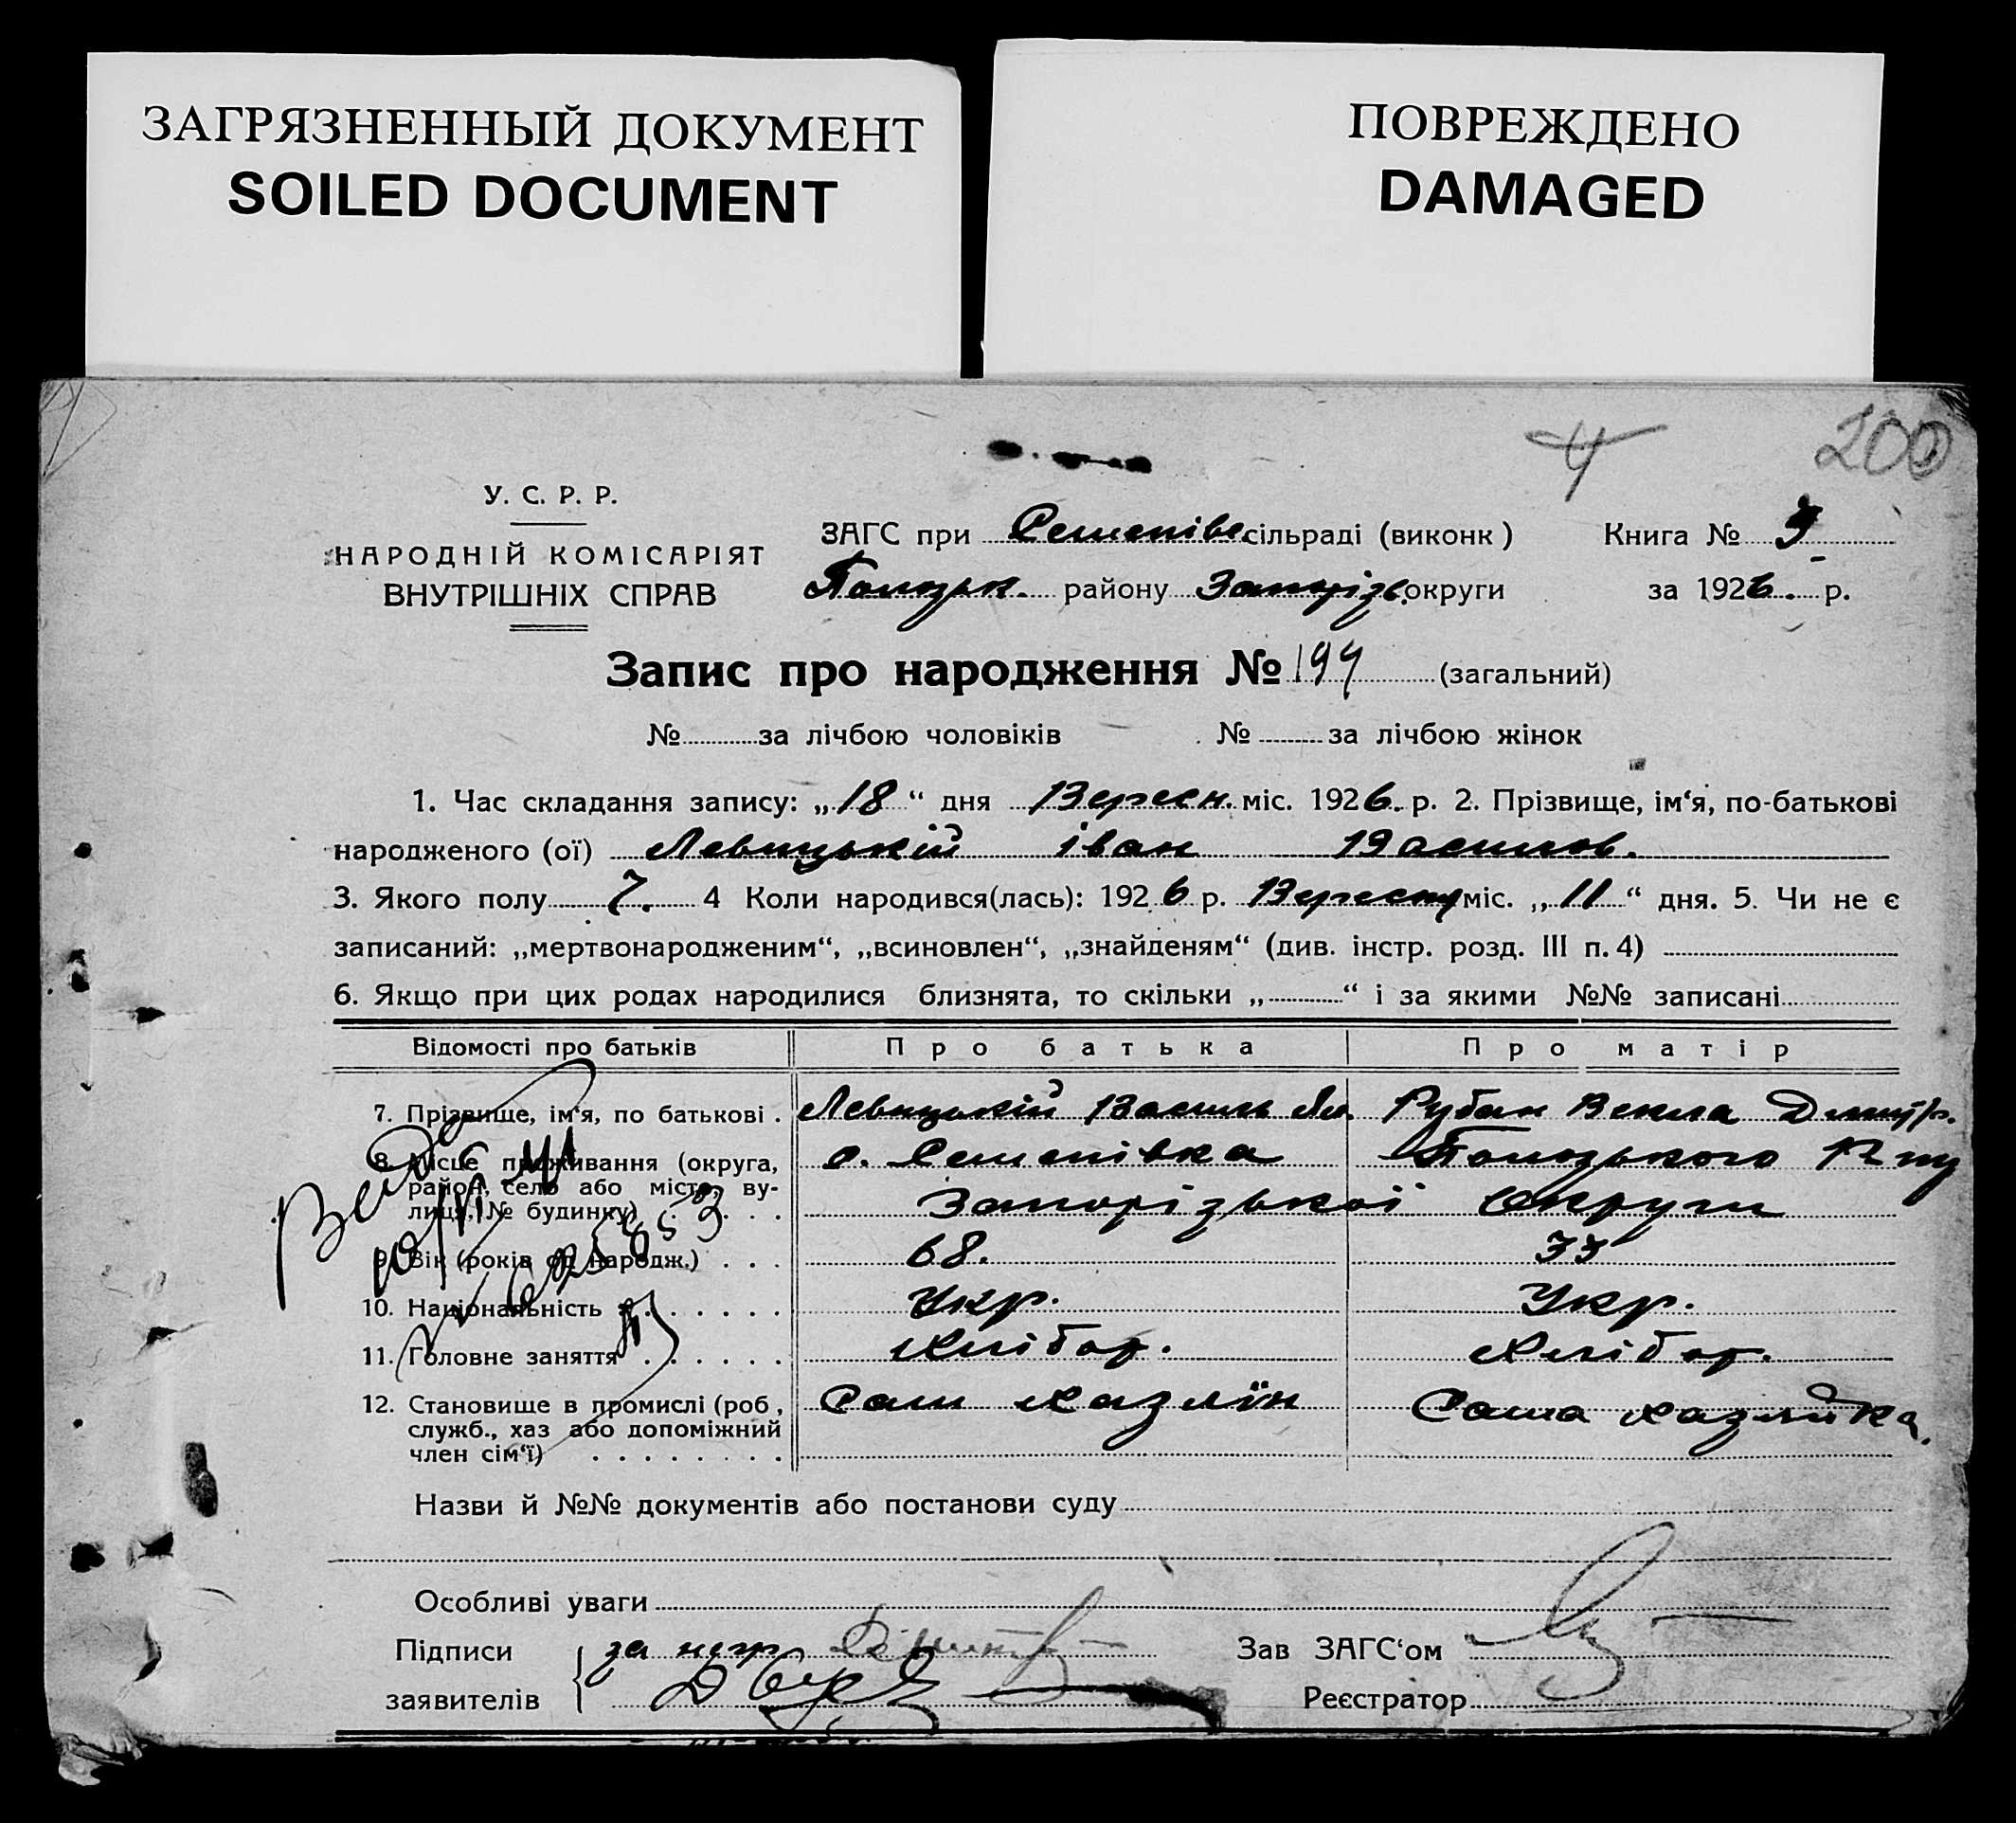 ЗАГРЯЗНЕННЫЙ ДОКУМЕНТ
SOILED DOCUMENT
ПОВРЕЖДЕНО
DAMAGED
4
200
У. С. Р. Р.
НАРОДНІЙ КОМІСАРІЯТ
ВНУТРІШНІХ СПРАВ
ЗАГС при сільраді (виконк)
району Запоріз. округи
Книга №
за 1926. р.
Запис про народження № 194 (загальний)
№ за лічбою чоловіків № за лічбою жінок
1. Час складання запису: „18“ дня Вересн. міс. 1926. р. 2. Прізвище, ім‘я, по-батькові
народженого (ої) Левицький іван Васильов.
3. Якого полу Ч. 4 Коли народився(лась): 1926 р. Вересня міс. „11“ дня. 5. Чи не є
записаний: „мертвонародженим“, „всиновлен“, „знайденям“ (див. інстр. розд. III п. 4)
6. Якщо при цих родах народилися близнята, то скільки „ “ і за якими №№ записані
Відомості про батьків Про батька Про матір
7. Прізвище, ім‘я, по батькові . Левицький Василь Рубан Векла Дмитр.
8. Місце проживання (округа, Полозького
район, село або місто, ву-
лиця, № будинку) . . . . Запорізької Округи
9. Вік (років од народж.) . . . 68. 33
10. Національність . . . . . . . Укр. Укр.
11. Головне заняття . . . . . . Хлібор. Хлібор.
12. Становище в промислі (роб, Сам хазяїн Сама хазяйка.
служб., хаз або допоміжний
член сім‘ї) . . . . . . . .
Назви й №№ документів або постанови суду
Особливі уваги
Підписи за негр.
заявителів
Зав ЗАГС‘ом
Реєстратор